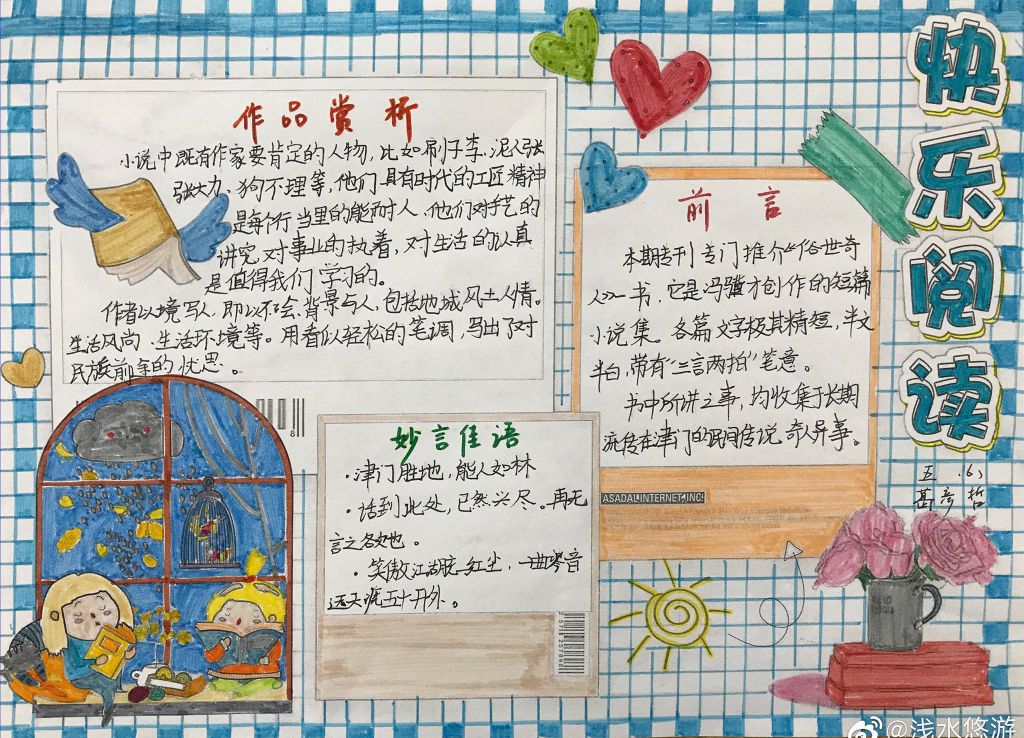 快乐阅读
作品赏析
小说中既有作家要肯定的人物,比如刷子李、泥人张
张大力、狗不理等,他们具有时代的工匠精神
是每个行当里的能耐人,他们对手艺的
讲究对事业的执着,对生活的认真
是值得我们学习的。
作者以境写人,即以不会背景与人,包括地域风土人情。
生活风尚、生活环境等。用看似轻松的笔调,写出了对
民族前途的忧思。
前言
本期专刊专门推介《俗世奇
人》一书,它是冯骥才创作的短篇
小说集。各篇文字极其精短,半文
半白,带有“三言两拍”笔意。
书中所讲之事,均收集于长期
流传在津门的民间传说奇人异事。
ASADAL INTERNET, INC.
妙言佳语
·津门胜地,能人如林
·话到此处,已然兴尽。再无
言之各她。
·笑傲江湖脱红尘,一曲琴音
五.6)
葛彦哲
@浅水悠游